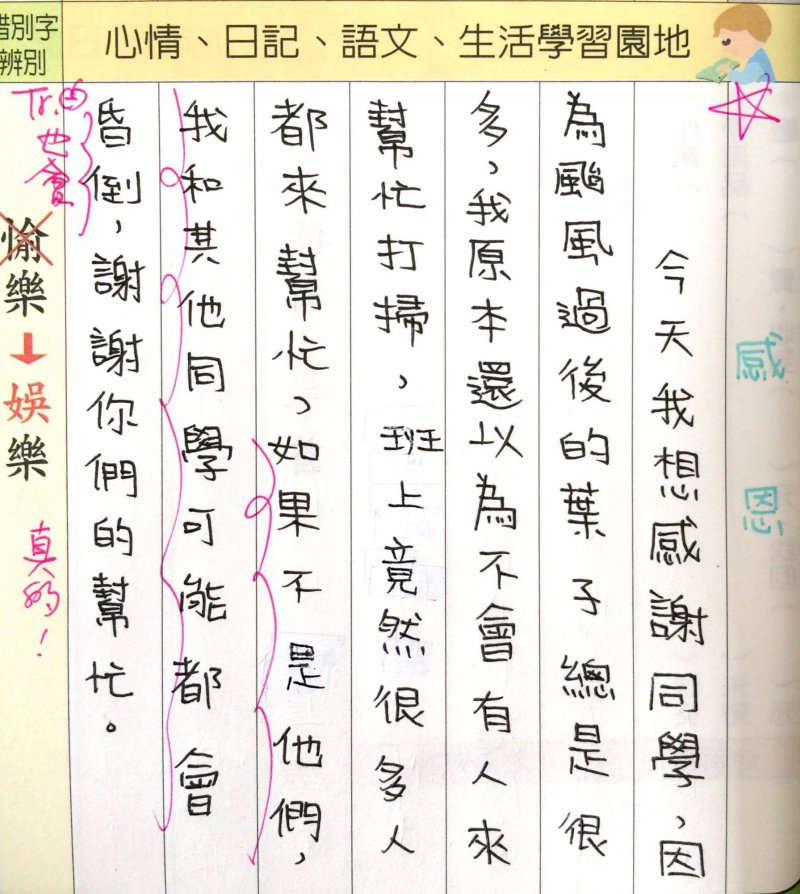 心情、日記、語文、生活學習園地
感恩
今天我想感謝同學，因
為颱風過後的葉子總是很
多，我原本還以為不會有人來
幫忙打掃，班上竟然很多人
都來幫忙，如果不是他們，
我和其他同學可能都會
昏倒，謝謝你們的幫忙。
Tr.也會
真的！
錯別字
辨別
愉樂➡娛樂